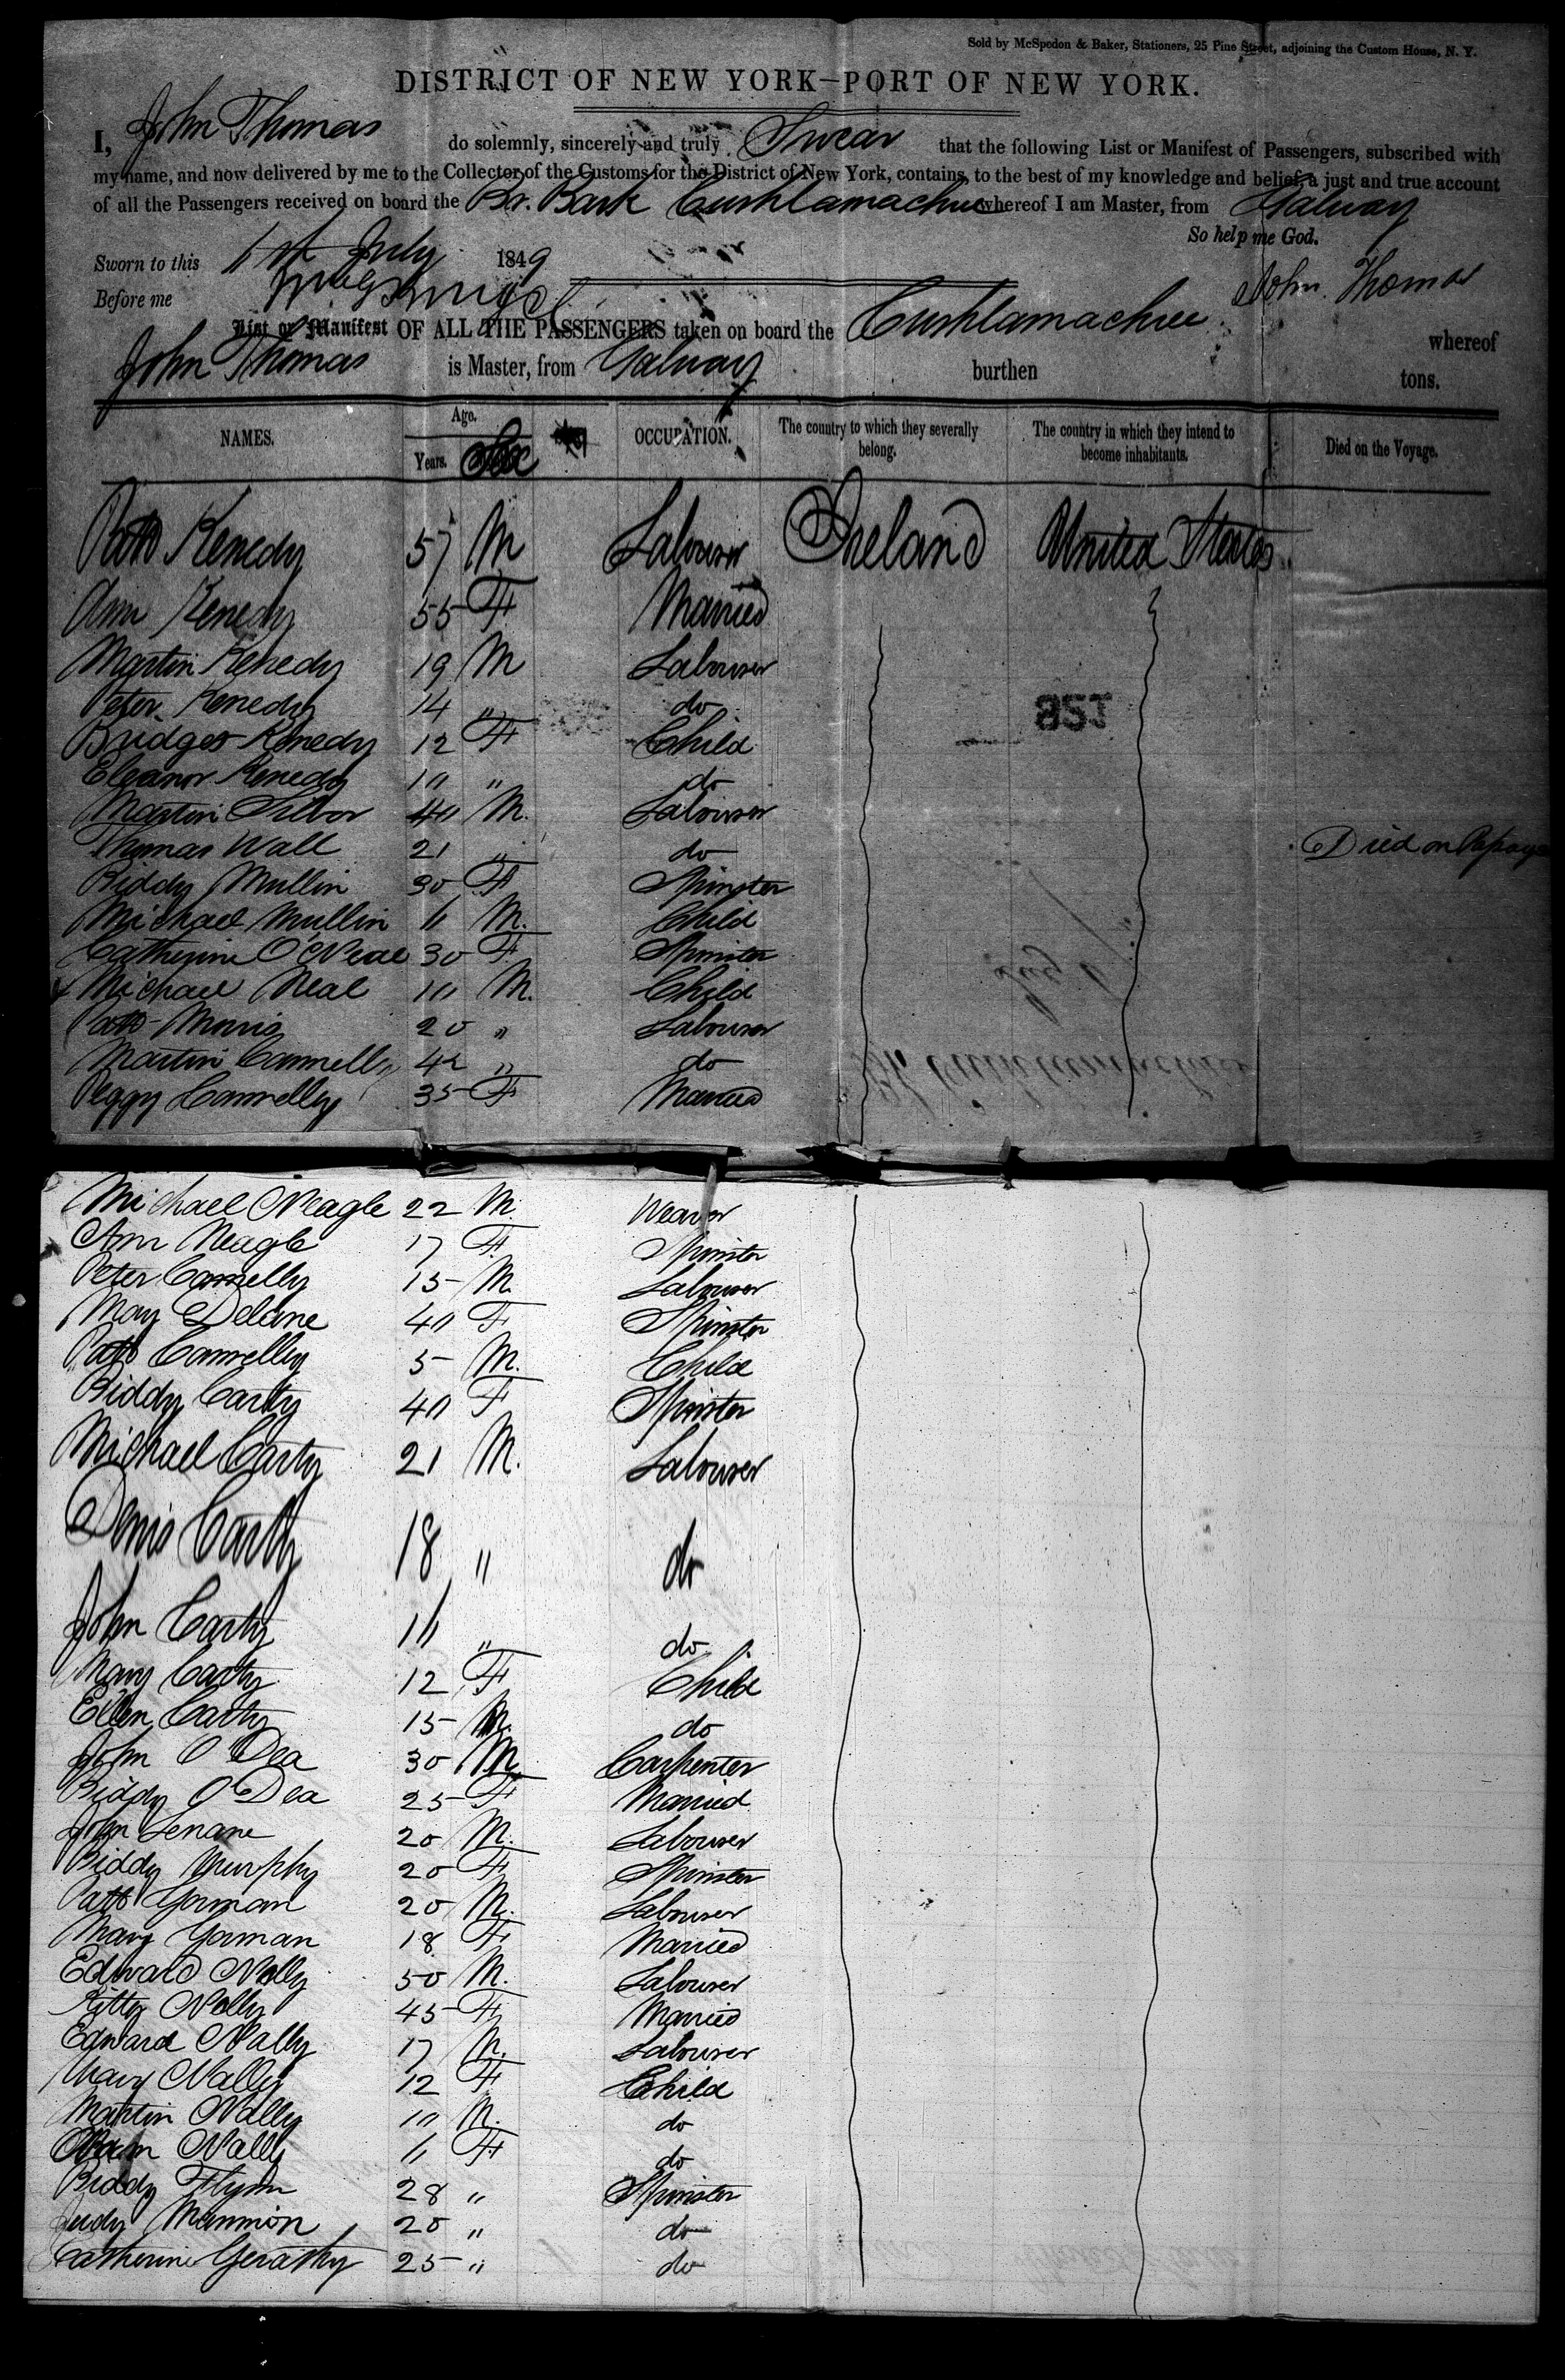 Sold by McSpedon & Baker, Stationers, 25 Pine Street, adjoining the Custom House, N. Y.
DISTRICT OF NEW YORK—PORT OF NEW YORK.
I, John Thomas do solemnly, sincerely and truly Swear that the following List or Manifest of Passengers, subscribed with
my name, and now delivered by me to the Collector of the Customs for the District of New York, contains, to the best of my knowledge and belief, a just and true account
of all the Passengers received on board the Br. Bark Cushlamachree whereof I am Master, from Galway
So help me God.
Sworn to this 1st July 1849
Before me John Thomas
List or Manifest OF ALL THE PASSENGERS taken on board the Cushlamachree whereof
John Thomas is Master, from Galway burthen tons.
NAMES. Age. Years. Sex OCCUPATION. The country to which they severally belong. The country in which they intend to become inhabitants. Died on the Voyage.
Patt Kenedy 57 M Labourer Ireland United States
Ann Kenedy 55 F Married
Martin Kenedy 19 M Labourer
Peter Kenedy 14 " do
Bridget Kenedy 12 F Child
Eleanor Kenedy 10 " do
Martin 40 M. Labourer
Thomas Wall 21 " do Died on
Biddy Mullin 30 F Spinster
Michael Mullin 11 M. Child
Catherine O'Neal 30 F Spinster
Michael Neal 10 M. Child
Patt Morris 20 " Labourer
Martin Connelly 42 " do
Peggy Connelly 35 F Married
Michael Neagle 22 M. Weaver
Ann Neagle 17 F Spinster
Peter Connelly 15 M. Labourer
Mary Delane 40 F Spinster
Patt Connelly 5 M. Child
Biddy Carty 40 F Spinster
Michael Carty 21 M. Labourer
Denis Carty 18 " do
John Carty "  do
Mary Carty 12 F Child
Ellen Carty 15 do
John O'Dea 30 M Carpenter
Biddy O'Dea 25 F Married
John Lenane 20 M. Labourer
Biddy Murphy 20 F Spinster
Patt Gorman 20 M. Labourer
Mary Gorman 18 F Married
Edward Nally 50 M. Labourer
Kitty Nally 45 F Married
Edward Nally 17 M. Labourer
Mary Nally 12 F Child
Martin Nally 10 M. do
Nally 11 F do
Biddy Flynn 28 " Spinster
Judy Mannion 20 " do
Catherine Geraghty 25 " do